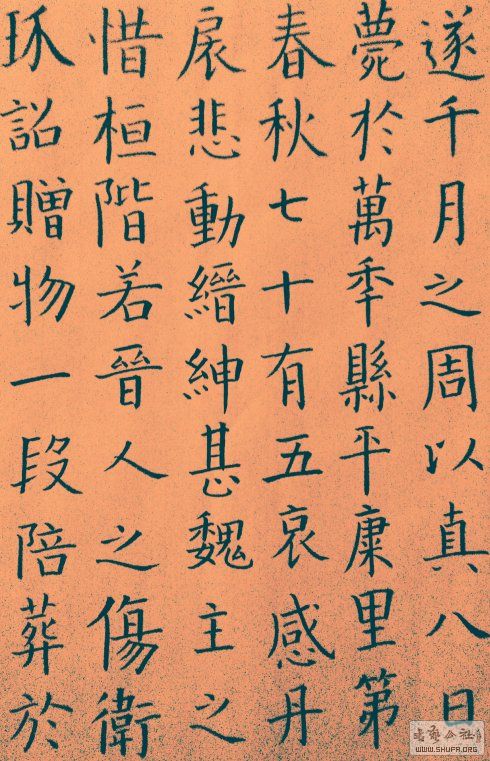 遂千月之周以真八日
薨於萬秊縣平康里第
春秋七十有五哀感丹
扆悲動縉紳甚魏主之
惜桓階若晉人之傷衛
玠詔贈物一段陪葬於
WWW.SHUFA.ORG